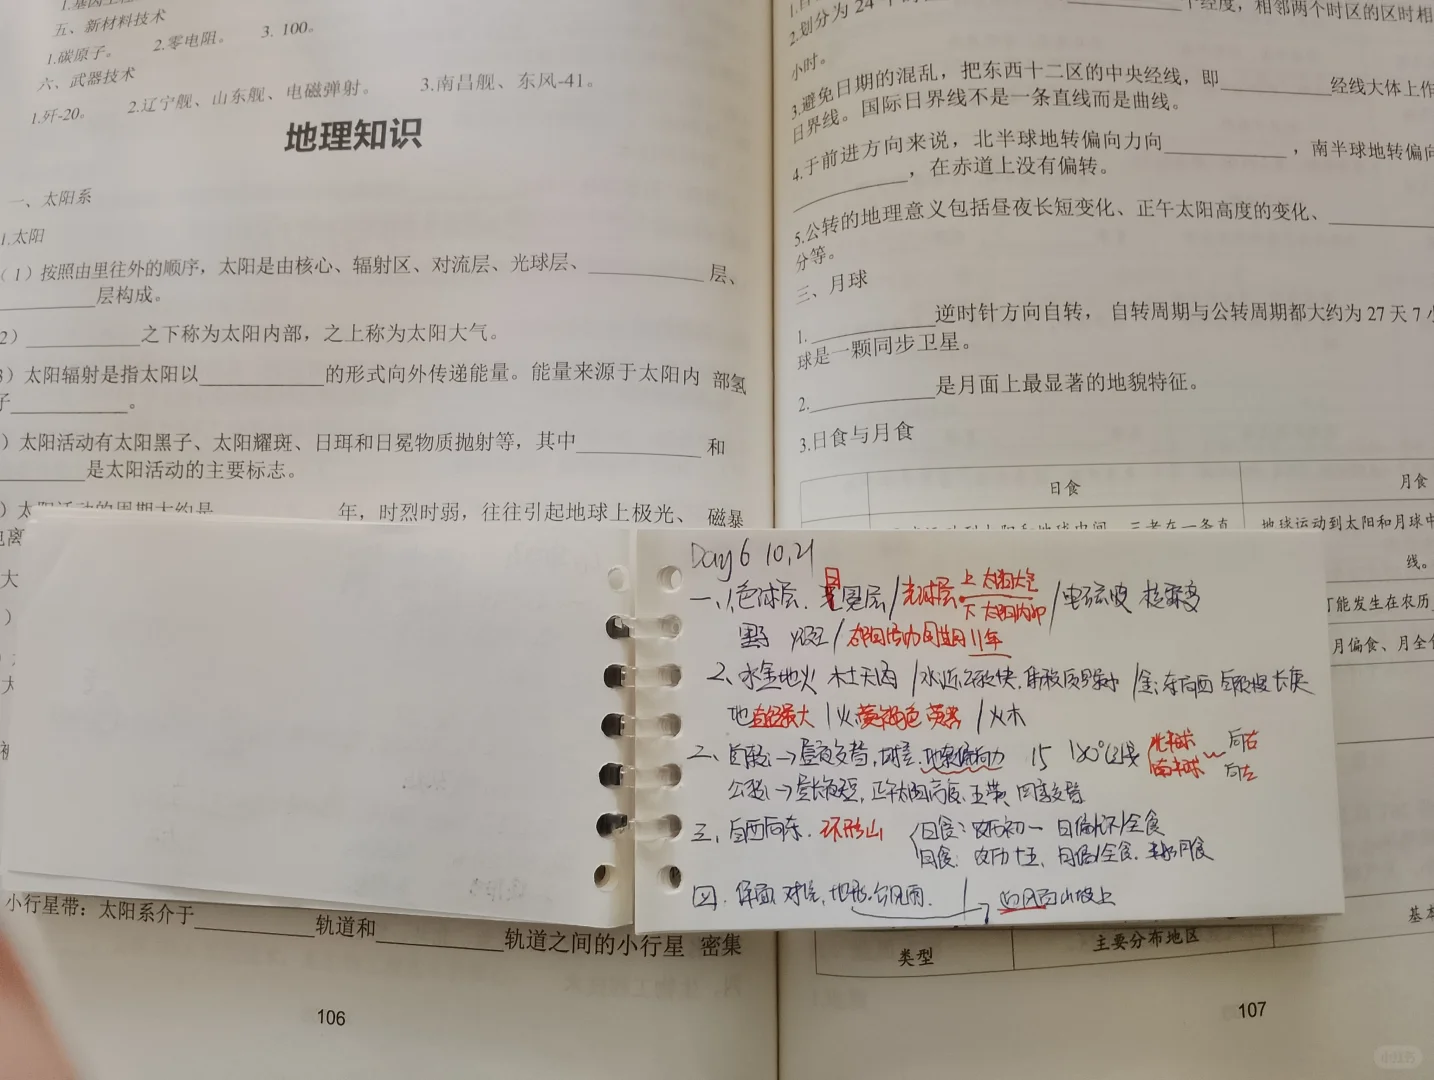 1.基因工程
五、新材料技术
1.碳原子。 2.零电阻。 3. 100。
六、武器技术
1.歼-20。 2.辽宁舰、山东舰、电磁弹射。 3.南昌舰、东风-41。
地理知识
一、太阳系
1.太阳
（1）按照由里往外的顺序，太阳是由核心、辐射区、对流层、光球层、__________层、
__________层构成。
2）__________之下称为太阳内部，之上称为太阳大气。
3）太阳辐射是指太阳以__________的形式向外传递能量。能量来源于太阳内 部氢
子__________。
）太阳活动有太阳黑子、太阳耀斑、日珥和日冕物质抛射等，其中__________和
__________是太阳活动的主要标志。
）太阳活动的周期大约是__________年，时烈时弱，往往引起地球上极光、 磁暴
电离
大
）
大
小行星带：太阳系介于__________轨道和__________轨道之间的小行星 密集
106
个经度，相邻两个时区的区时相
2.划分为 24 个时
小时。
3.避免日期的混乱，把东西十二区的中央经线，即__________经线大体上作
日界线。国际日界线不是一条直线而是曲线。
4.于前进方向来说，北半球地转偏向力向__________，南半球地转偏向
__________，在赤道上没有偏转。
5.公转的地理意义包括昼夜长短变化、正午太阳高度的变化、__________
分等。
三、月球
1.__________逆时针方向自转， 自转周期与公转周期都大约为 27 天 7 小
球是一颗同步卫星。
2.__________是月面上最显著的地貌特征。
3.日食与月食
日食 月食
运动到太阳和地球中间，三者在一条直 地球运动到太阳和月球中
线。
可能发生在农历
月偏食、月全食
基本
类型 主要分布地区
107
Day 6 10.21
一、1.色球层、日冕层/光球层 上 太阳大气 下 太阳内部/电磁波 核聚变
黑子 耀斑/太阳活动周期11年
2、水金地火 木土天海/水近公转快，体积质量最小/金：东向西 自转慢
地 直径最大/火 黄褐色 荧惑/火木
二、自转→昼夜交替，时差、地转偏向力 15 180°经线 北半球 向右
南半球 向左
公转→昼夜长短，正午太阳高度、五带、四季交替
三、自西向东、环形山 日食：农历初一 日偏/环/全食
月食：农历十五、月偏/全食、半影月食
四、锋面、对流、地形、台风雨、 迎风面山坡上
小红书